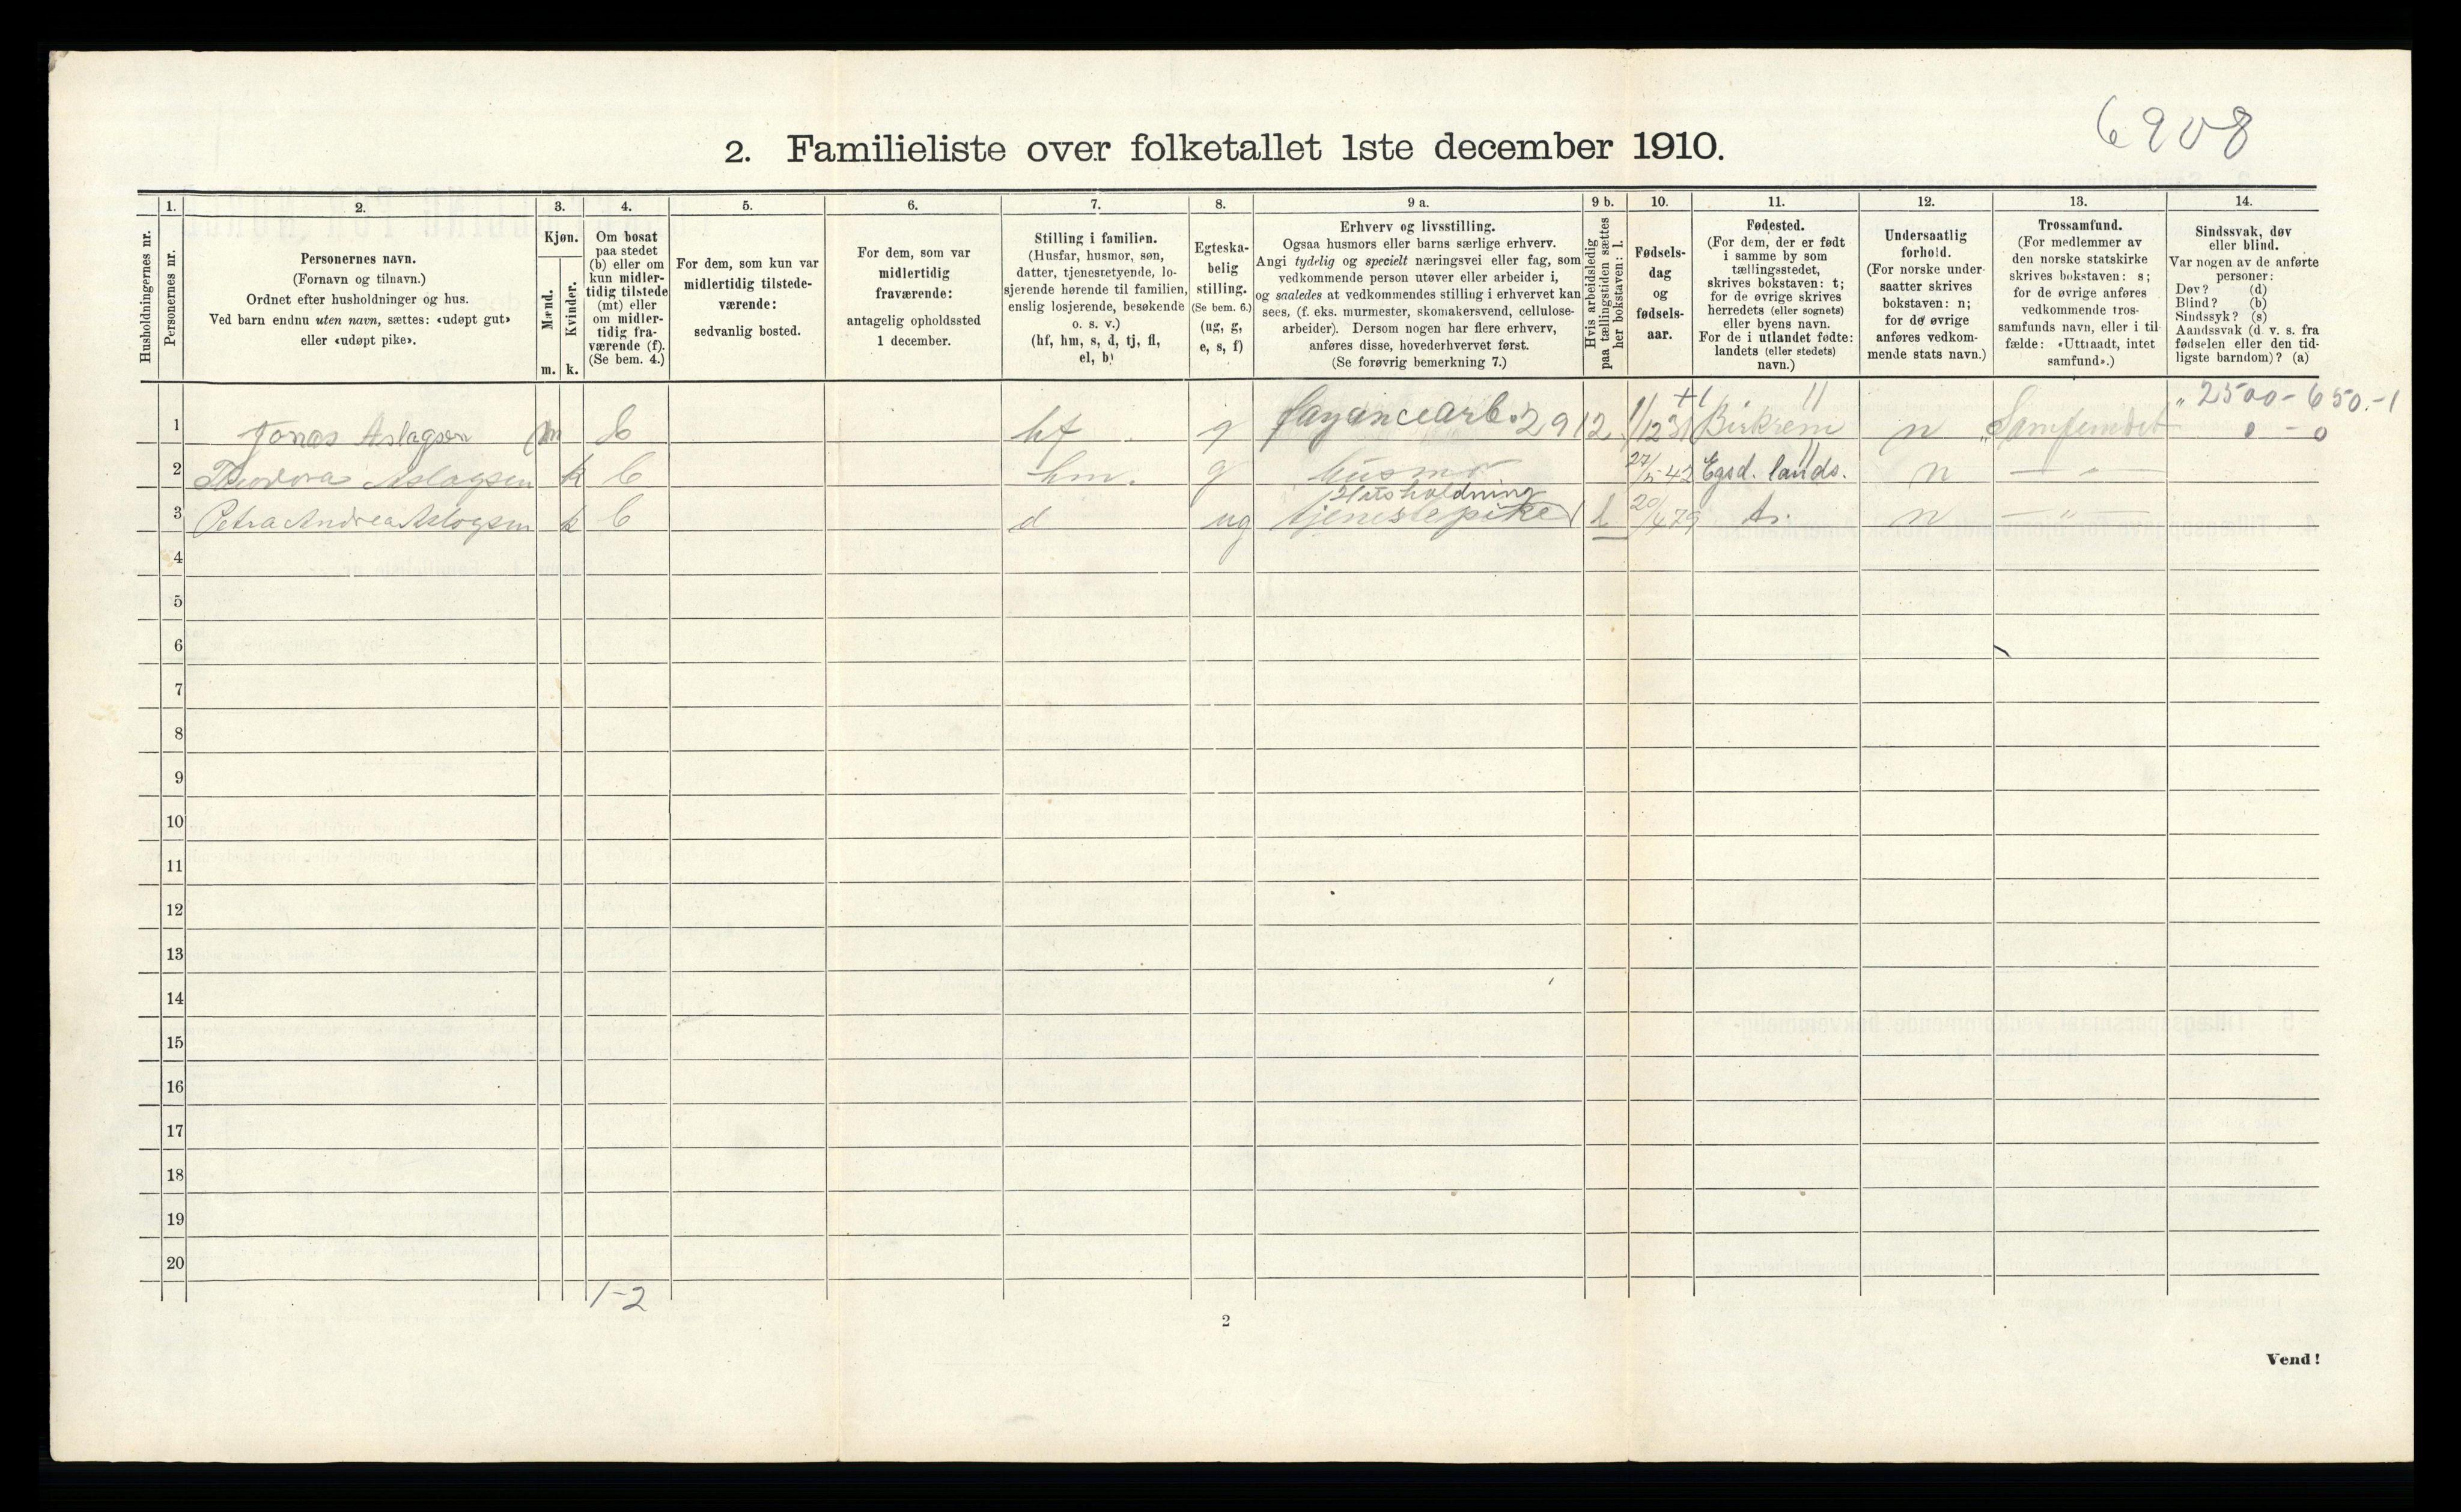 6908
2. Familieliste over folketallet 1ste december 1910.
1. 2. 3. 4. 5. 6. 7. 8. 9 a. 9 b. 10. 11. 12. 13. 14.
Husholdningernes nr.
Personernes nr.
Personernes navn.
(Fornavn og tilnavn.)
Ordnet efter husholdninger og hus.
Ved barn endnu uten navn, sættes: «udøpt gut»
eller «udøpt pike».
Kjøn.
Mænd.
Kvinder.
m. k.
Om bosat
paa stedet
(b) eller om
kun midler-
tidig tilstede
(mt) eller
om midler-
tidig fra-
værende (f).
(Se bem. 4.)
For dem, som kun var
midlertidig tilstede-
værende:
sedvanlig bosted.
For dem, som var
midlertidig
fraværende:
antagelig opholdssted
1 december.
Stilling i familien.
(Husfar, husmor, søn,
datter, tjenestetyende, lo-
sjerende hørende til familien,
enslig losjerende, besøkende
o. s. v.)
(hf, hm, s, d, tj, fl,
el, b)
Egteska-
belig
stilling.
(Se bem. 6.)
(ug, g,
e, s, f)
Erhverv og livsstilling.
Ogsaa husmors eller barns særlige erhverv.
Angi tydelig og specielt næringsvei eller fag, som
vedkommende person utøver eller arbeider i,
og saaledes at vedkommendes stilling i erhvervet kan
sees, (f. eks. murmester, skomakersvend, cellulose-
arbeider). Dersom nogen har flere erhverv,
anføres disse, hovederhvervet først.
(Se forøvrig bemerkning 7.)
Hvis arbeidsledig
paa tællingstiden sættes
her bokstaven: l.
Fødsels-
dag
og
fødsels-
aar.
Fødested.
(For dem, der er født
i samme by som
tællingsstedet,
skrives bokstaven: t;
for de øvrige skrives
herredets (eller sognets)
eller byens navn.
For de i utlandet fødte:
landets (eller stedets)
navn.)
Undersaatlig
forhold.
(For norske under-
saatter skrives
bokstaven: n;
for de øvrige
anføres vedkom-
mende stats navn.)
Trossamfund.
(For medlemmer av
den norske statskirke
skrives bokstaven: s;
for de øvrige anføres
vedkommende tros-
samfunds navn, eller i til-
fælde: «Uttraadt, intet
samfund».)
Sindssvak, døv
eller blind.
Var nogen av de anførte
personer:
Døv? (d)
Blind? (b)
Sindssyk? (s)
Aandssvak (d. v. s. fra
fødselen eller den tid-
ligste barndom)? (a)
2500-650.-1
1 Jonas Aslagsen m b hf g fayancearb. 2912 1/12 31 Birkrem n Samfundet 0 - 0
2 Theodora Aslagsen k b hm. g husmor 27/5 42 Egsd. lands. n — " —
Husholdning
3 Petra Andrea Aslogsen k b d ug tjenestepike l 20/4 79 t. n — " —
4
5
6
7
8
9
10
11
12
13
14
15
16
17
18
19
20
1-2
2
Vend!